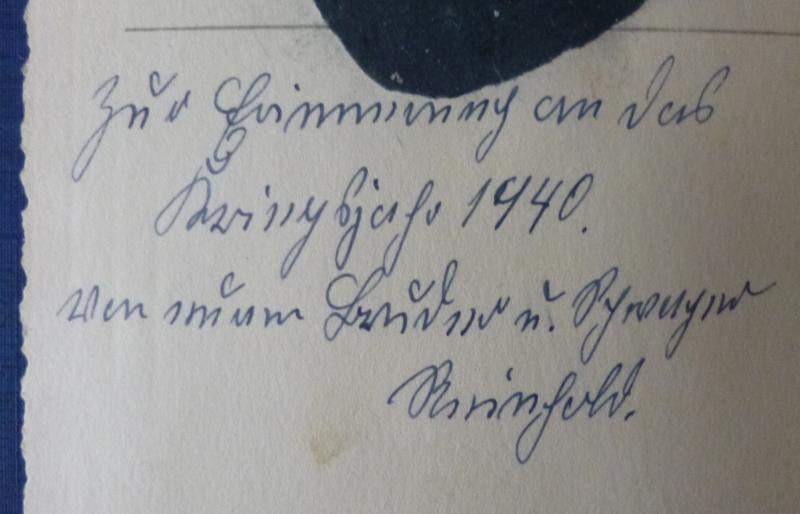 Zur Erinnerung an das
Kriegsjahr 1940.
von euerm Bruder u. Schwager
Reinhold.